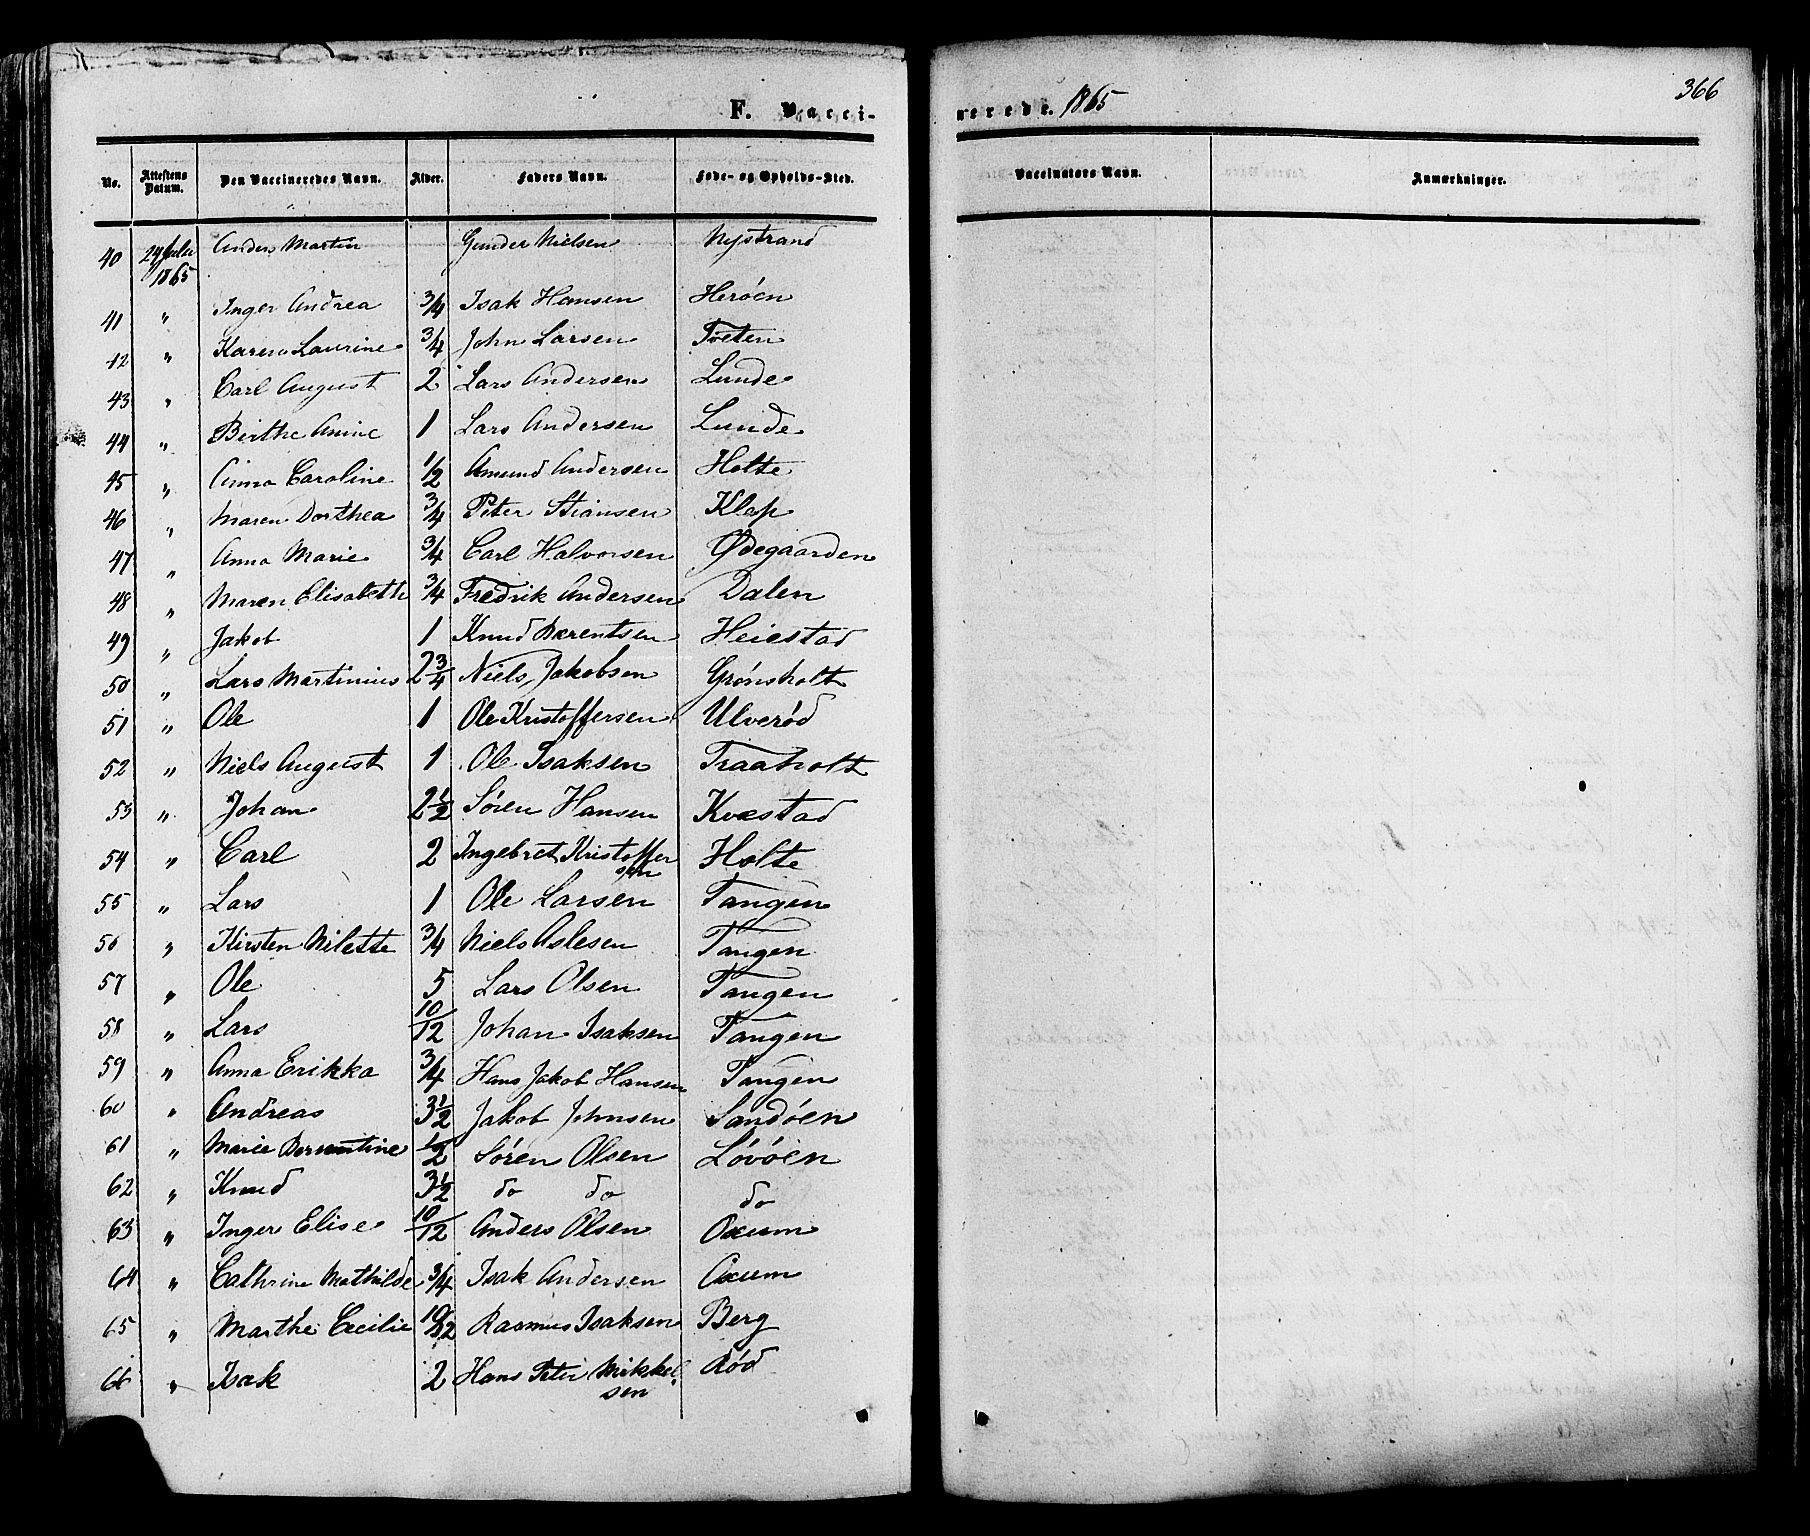 366
F. Vacci-
nerede. 1865
No. Attestens Datum. Den Vaccineredes Navn. Alder. Faders Navn. Føde- og Opholds-Sted. Vaccinators Navn. Anmærkninger.
40 24 Juli 1865 Anders Martin Gunder Nielsen Nystrand
41 " Inger Andrea 3/4 Isak Hansen Herøen
42 " Karen Laurine 3/4 John Larsen Toeten
43 " Carl August 2 Lars Andersen Lunde
44 " Birthe Anine 1 Lars Andersen Lunde
45 " Anna Caroline 1/2 Amund Andersen Holte
46 " Maren Dorthea 3/4 Peter Stiansen Klap
47 " Anna Marie 3/4 Carl Halvorsen Ødegaarden
48 " Maren Elisabeth 3/4 Fredrik Andersen Dalen
49 " Jakob 1 Knud Bærentsen Heiestad
50 " Lars Martinius 2 3/4 Niels Jakobsen Grønsholt
51 " Ole 1 Ole Kristoffersen Ulverød
52 " Niels August 1 Ole Isaksen Traaholt
53 " Johan 2 1/2 Søren Hansen Kvæstad
54 " Carl 2 Ingebret Kristoffer
sen Holte
55 " Lars 1 Ole Larsen Tangen
56 " Kirsten Nilette 3/4 Niels Aslesen Tangen
57 " Ole 5 Lars Olsen Tangen
58 " Lars 10/12 Johan Isaksen Tangen
59 " Anna Erikka 3/4 Hans Jakob Hansen Tangen
60 " Andreas 3 1/2 Jakob Johnsen Sandøen
61 " Marie 1/2 Søren Olsen Løvøen
62 " Knud 3 1/2 do do do
63 " Inger Elise 10/12 Anders Olsen Oxum
64 " Cathrine Mathilde 3/4 Isak Andersen Oxum
65 " Marthe Cecilie 10/12 Rasmus Isaksen Berg
66 " Isak 2 Hans Peter Mikkel-
sen Rød